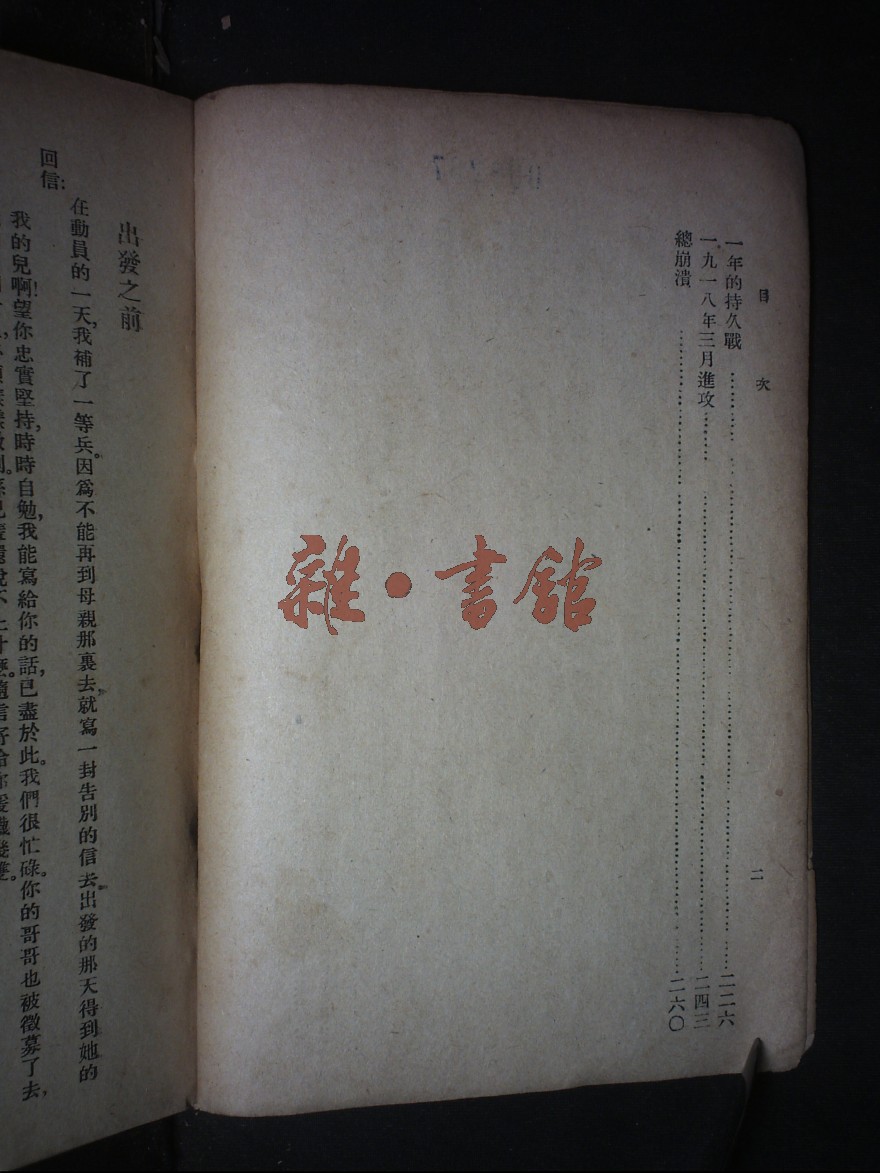 目次
二
一年的持久戰……二二六
一九一八年三月進攻……二四三
總崩潰……二六〇
雜•書館
出發之前
在動員的一天,我補了一等兵。因爲不能再到母親那裏去,就寫一封告別的信去。出發的那天得到她的
回信:
我的兒啊!望你忠實堅持,時時自勉,我能寫給你的話,已盡於此。我們很忙碌。你的哥哥也被徵募了去,